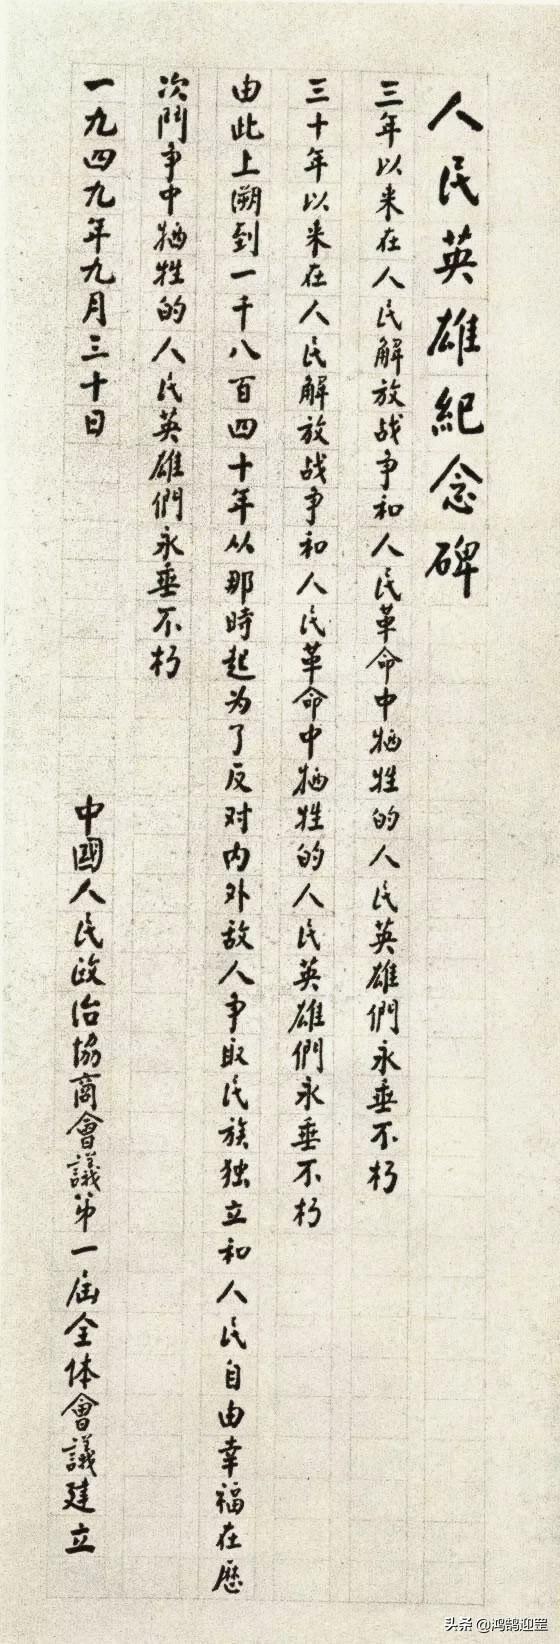 人民英雄紀念碑
三年以来在人民解放战争和人民革命中牺牲的人民英雄們永垂不朽
三十年以来在人民解放战争和人民革命中牺牲的人民英雄們永垂不朽
由此上溯到一千八百四十年从那時起为了反对内外敌人争取民族独立和人民自由幸福在歷
次鬥争中牺牲的人民英雄們永垂不朽
一九四九年九月三十日
中國人民政治協商會議第一届全体會議建立
头条 @鸿鹄迎罡